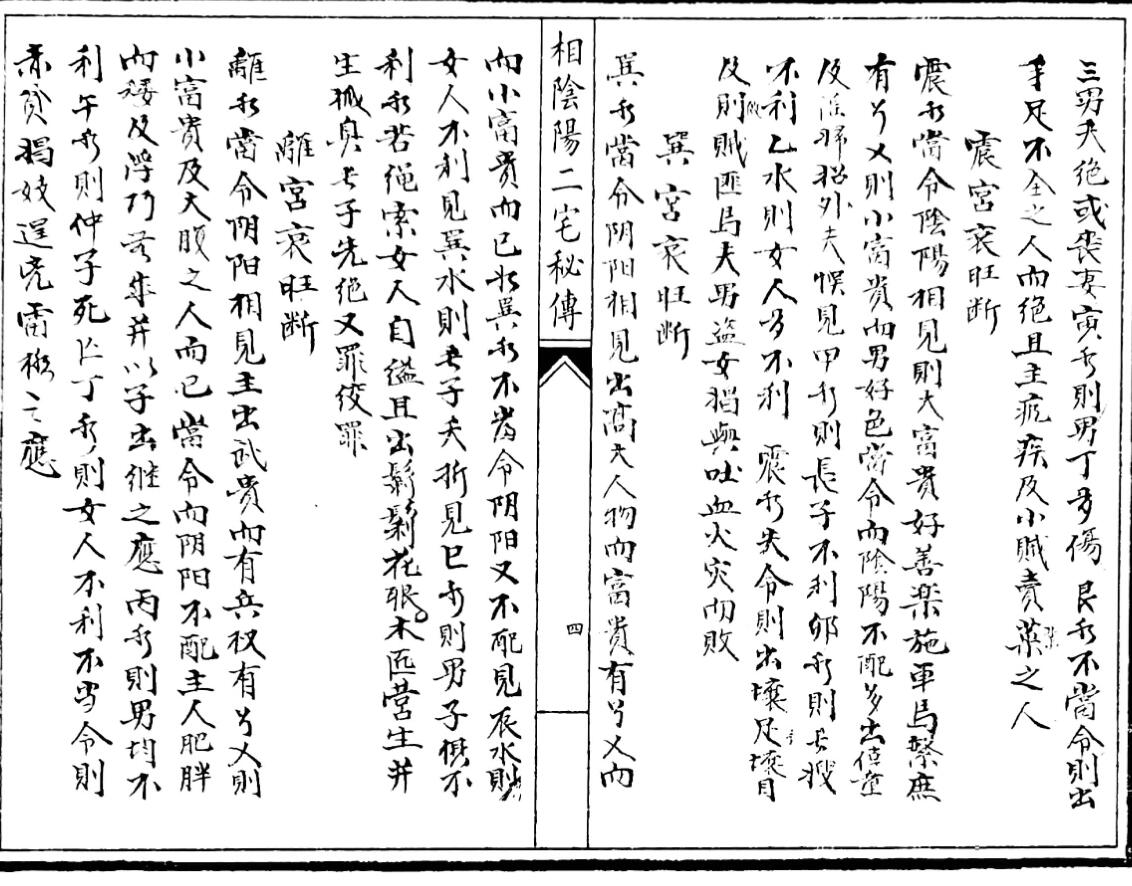 三男夭绝或丧妻寅水則男丁多傷 艮水不當令則出
手足不全之人而绝且主疯疾及小贼賣菜之人
震宮衰旺断
震水當令陰陽相見則大富貴好善楽施車馬繁庶
有爻則小富貴而男好色當令而陰陽不配多出
及淮婦招外夫悮見甲水則長子不利卯水則長
不利乙水則女人多不利 震水失令則出壞足壞目
及則贼匪馬夫男盗女猖與吐血火灾而敗
巽宮衰旺断
巽水當令阴阳相見出高大人物而富貴有爻而
相陰陽二宅秘傳
四
而小富貴而已水巽水不當令阴阳又不配見辰水則
女人不利見巽水則长子夭折見巳水則男子俱不
利水若绳索女人自缢且出鬍花眼木匠营生并
生狐臭长子先绝又罪绞罪
離宮衰旺断
離水當令阴阳相見主出武貴而有兵权有爻則
小富貴及大腹之人而已當令而阴阳不配主人肥胖
而矮及浮巧并以子出继之應丙水則男均不
利午水則仲子死亡丁水則女人不利不当令則
赤貧猖妓逞兇雷之應